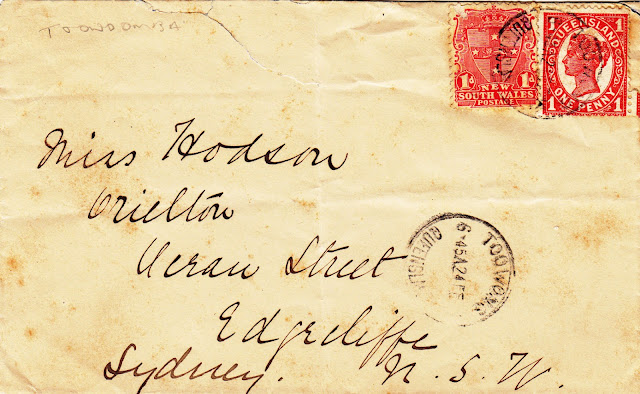 TOOWOOMBA
NEW
SOUTH WALES
POSTAGE
1d 1d
QUEENSLAND
1 1
ONE PENNY
1 1
Miss Hodson
Orielton
Ocean Street
Edgecliffe
Sydney. N. S. W.
TOOWONG
6·45A 24
QUEENSLA